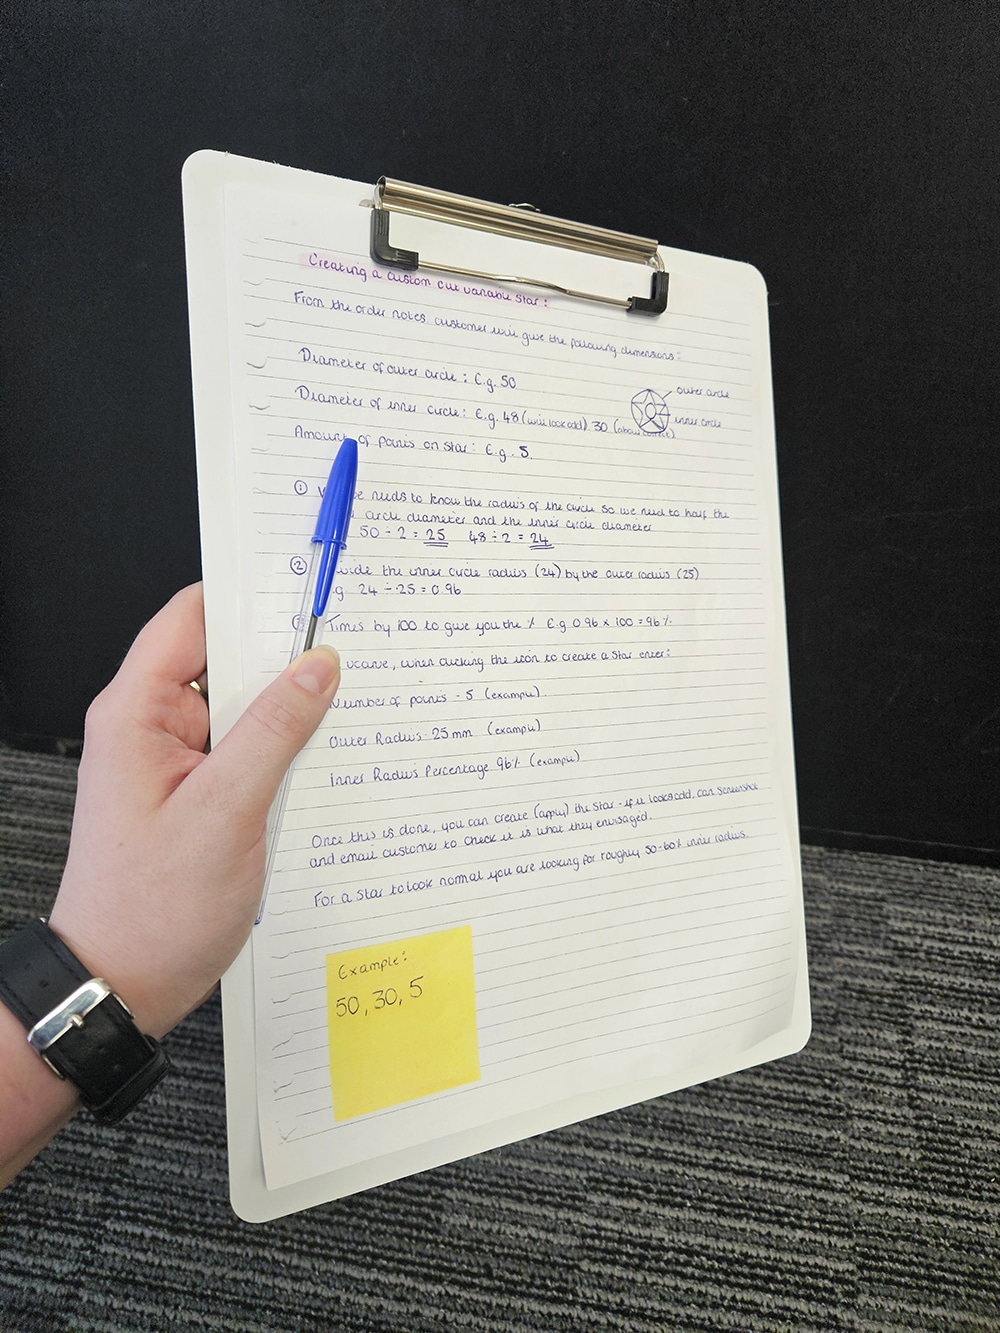 Creating a custom cut variable star:
From the order notes, customer will give the following dimensions:
Diameter of outer circle: E.g. 50
outer circle
Diameter of inner circle: E.g. 48 (will look odd). 30 (above correct).
inner circle
Amount of points on star: E.g. 5.
① needs to know the radius of the circle so we need to half the
circle diameter and the inner circle diameter
50 ÷ 2 = 25 48 ÷ 2 = 24
② the inner circle radius (24) by the outer radius (25)
24 ÷ 25 = 0.96
Times by 100 to give you the % E.g 0.96 x 100 = 96%.
vcarve, when clicking the icon to create a star enter:
Number of points - 5 (example).
Outer Radius - 25mm (example)
Inner Radius Percentage 96% (example)
Once this is done, you can create (apply) the star - if it looks odd, can screenshot
and email customer to check it is what they envisaged.
For a star to look normal you are looking for roughly 50-60% inner radius.
Example:
50, 30, 5